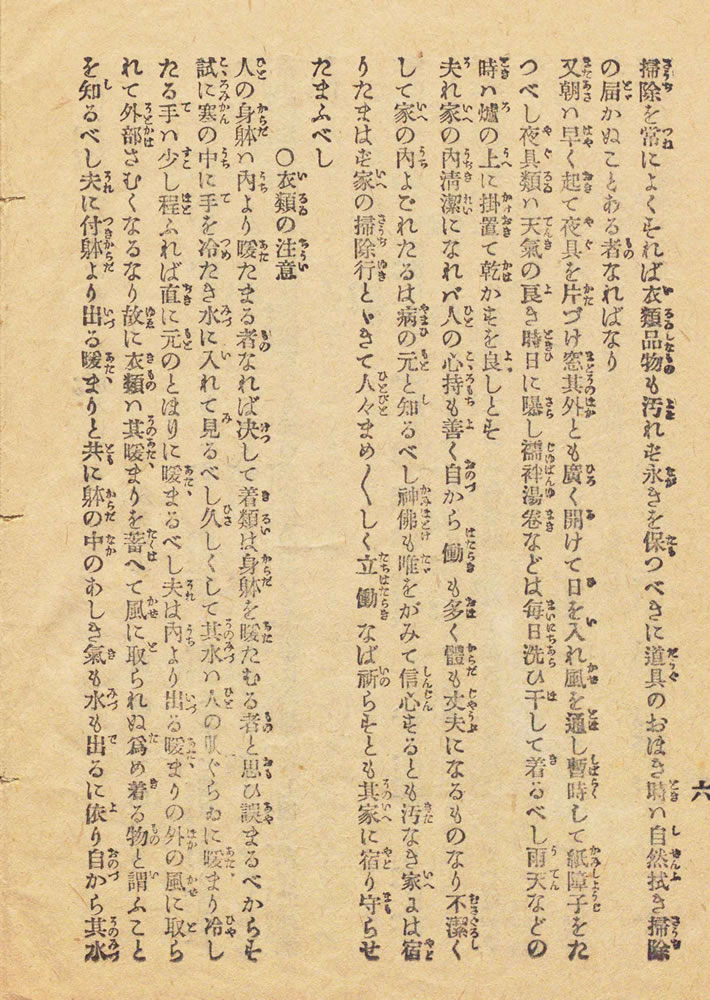 六
掃除を常によくすれば衣類品物も汚れず永きを保つべきに道具のおほき時ハ自然拭き掃除
の届かぬことある者なればなり
又朝ハ早く起て夜具を片づけ窓其外とも廣く開けて日を入れ風を通し暫時して紙障子をた
つべし夜具類ハ天氣の良き時日に曝し襦袢湯巻などは毎日洗ひ干して着るべし雨天などの
時ハ爐の上に掛置て乾かすを良しとす
夫れ家の内清潔になれバ人の心持も善く自から働も多く體も丈夫になるものなり不潔く
して家の内よごれたるは病の元と知るべし神佛も唯をがみて信心するとも汚なき家には宿
りたまはず家の掃除行とゞきて人々まめ〳〵しく立働なば祈らずとも其家に宿り守らせ
たまふべし
〇衣類の注意
人の身躰ハ内より暖たまる者なれば决して着類は身躰を暖たむる者と思ひ誤まるべからず
試に寒の中に手を冷たき水に入れて見るべし久しくして其水ハ人の肌ぐらゐに暖まり冷し
たる手ハ少し程ふれば直に元のとほりに暖まるべし夫は内より出る暖まりの外の風に取ら
れて外部さむくなるなり故に衣類ハ其暖まりを蓄へて風に取られぬ爲め着る物と謂ふこと
を知るべし夫に付躰より出る暖まりと共に躰の中のあしき氣も水も出るに依り自から其水